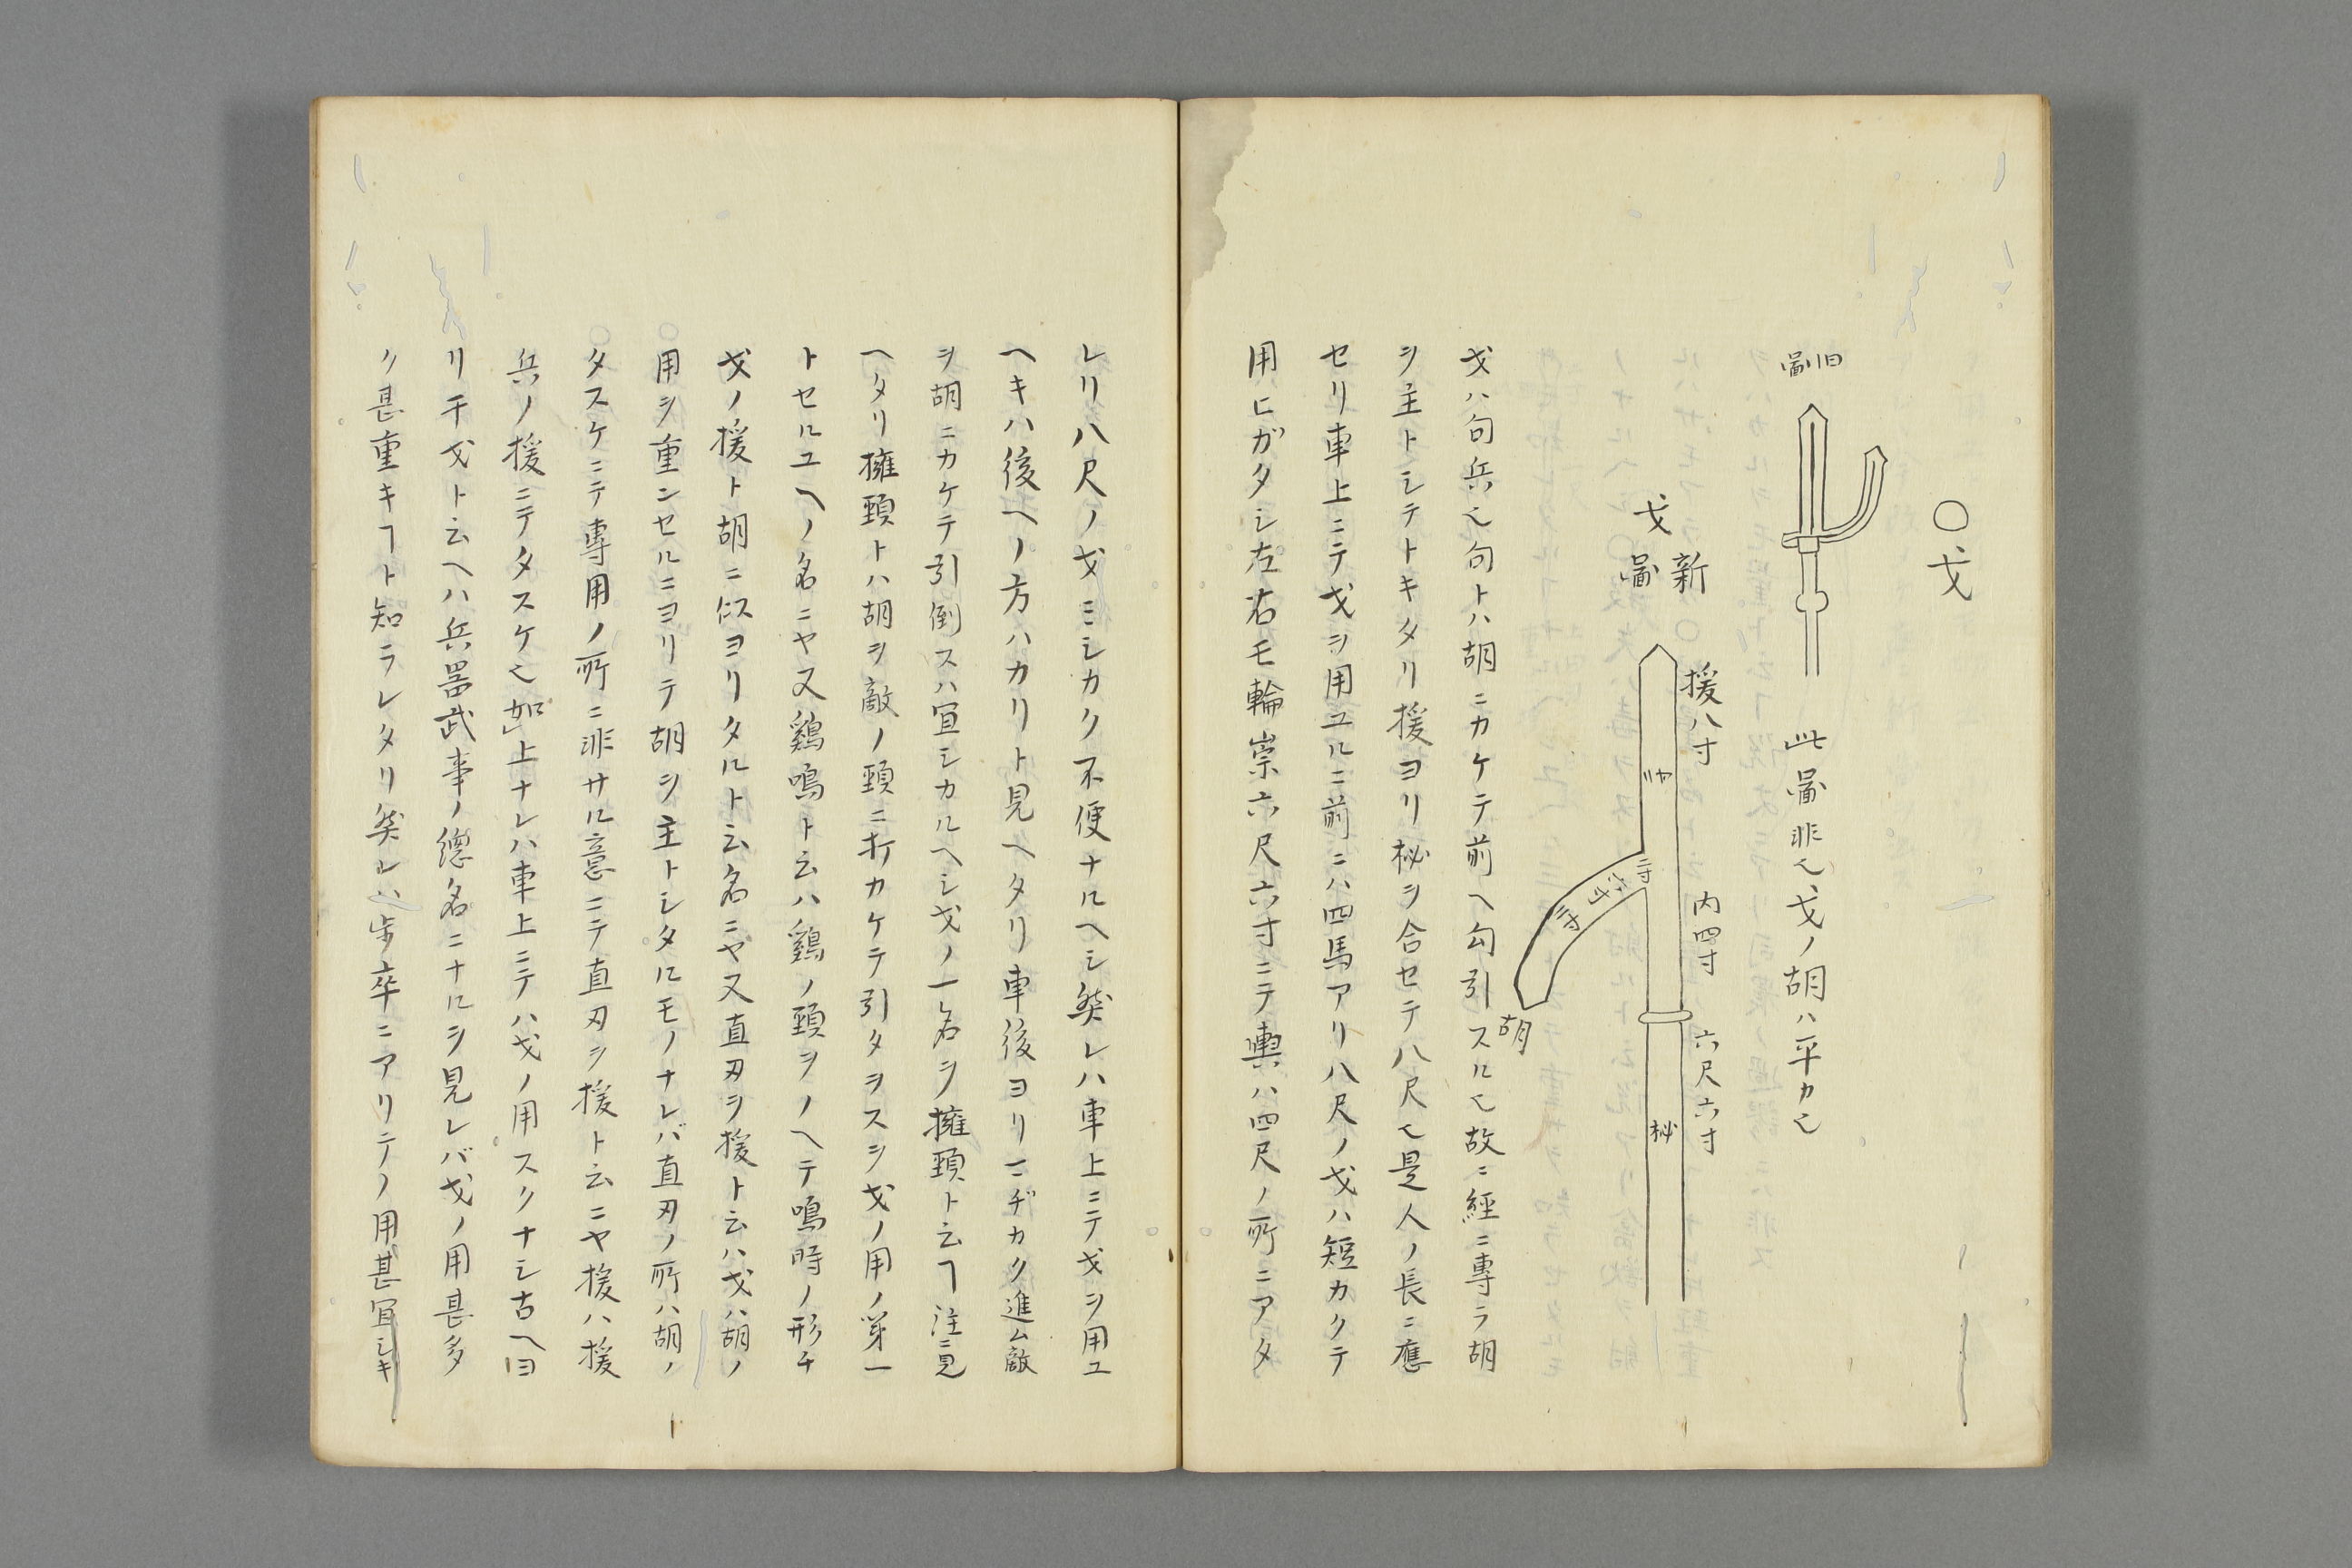 〇戈
旧圖
此圖非也戈ノ胡ハ平カ也
戈新圖
援八寸
刃
内四寸
六尺六寸
二寸
六寸
二寸
胡
柲
戈ハ句兵也句トハ胡ニカケテ前ヘ勾引スル也故ニ經ニ專ラ胡
ヲ主トシテトキタリ援ヨリ柲ヲ合セテ八尺也是人ノ長ニ應
セリ車上ニテ戈ヲ用ユルニ前ニハ四馬アリ八尺ノ戈ハ短カクテ
用ヒガタシ左右モ輪崇六尺六寸ニテ輿ハ四尺ノ所ニアタ
レリ八尺ノ戈ミシカク不便ナルヘシ然レハ車上ニテ戈ヲ用ユ
ヘキハ後ヘノ方ハカリト見ヘタリ車後ヨリマヂカク進ム敵
ヲ胡ニカケテ引倒スハ宜シカルヘシ戈ノ一名ヲ擁頸ト云ヿ注ニ見
ヘタリ擁頸トハ胡ヲ敵ノ頸ニ打カケテ引タヲスヲ戈ノ用ノ第一
トセルユヘノ名ニヤ又鷄鳴ト云ハ鷄ノ頸ヲノヘテ鳴時ノ形チ
戈ノ援ト胡ニ似ヨリタルト云名ニヤ又直刃ヲ援ト云ハ戈ハ胡ノ
用ヲ重ンセルニヨリテ胡ヲ主トシタルモノナレバ直刃ノ所ハ胡ノ
タスケニテ專用ノ所ニ非サル意ニテ直刃ヲ援ト云ニヤ援ハ援
兵ノ援ニテタスケ也如上ナレハ車上ニテハ戈ノ用スクナシ古ヘヨ
リ干戈ト云ヘハ兵器武事ノ總名ニナルヲ見レバ戈ノ用甚多
ク甚重キヿト知ラレタリ然レハ歩卒ニアリテノ用甚宜シキ